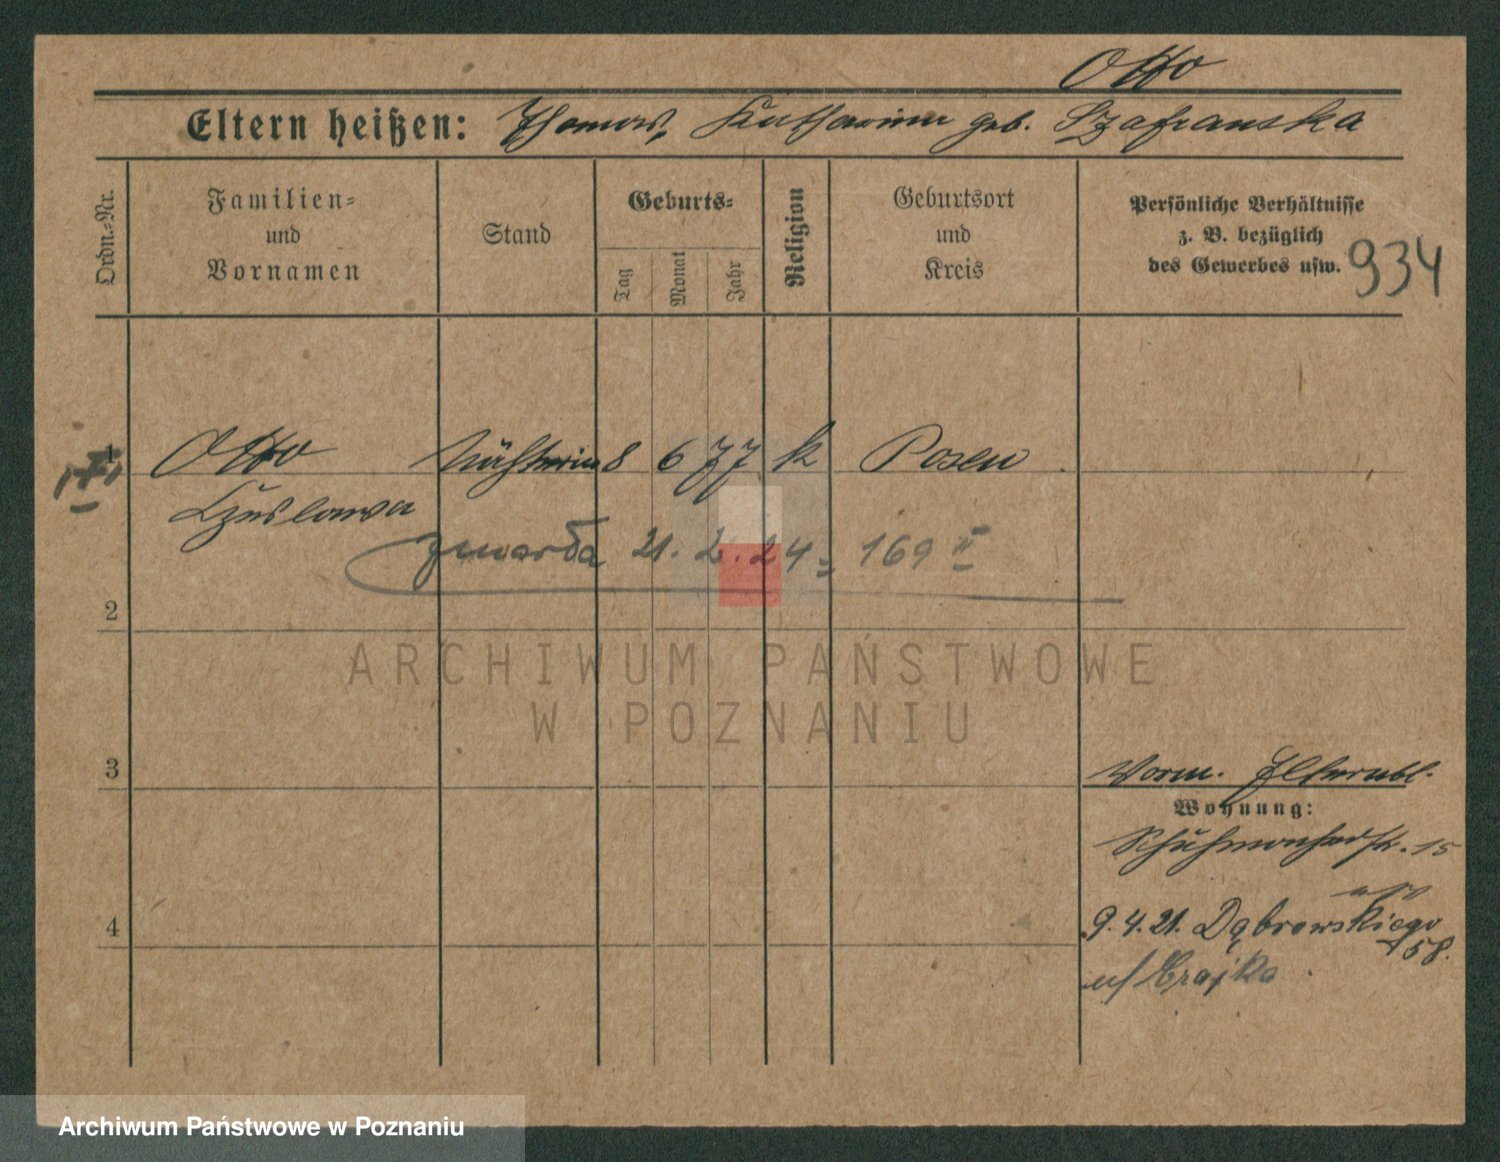 Otto
Eltern heißen: Thomas, Katharina geb. Szafranska
Ordn.-Nr.
Familien-
und
Vornamen
Stand
Geburts-
Tag
Monat
Jahr
Religion
Geburtsort
und
Kreis
Persönliche Verhältnisse
z. B. bezüglich
des Gewerbes usw.
934
1 Otto Näherin 8 6 77 k Posen
Czeslawa
zmarła 21.2.24 169 II
2
ARCHIWUM PAŃSTWOWE
W POZNANIU
3
Worm.
Wohnung:
15
4
9.4.21. Dąbrowskiego
58.
u/ Krajka
Archiwum Państwowe w Poznaniu